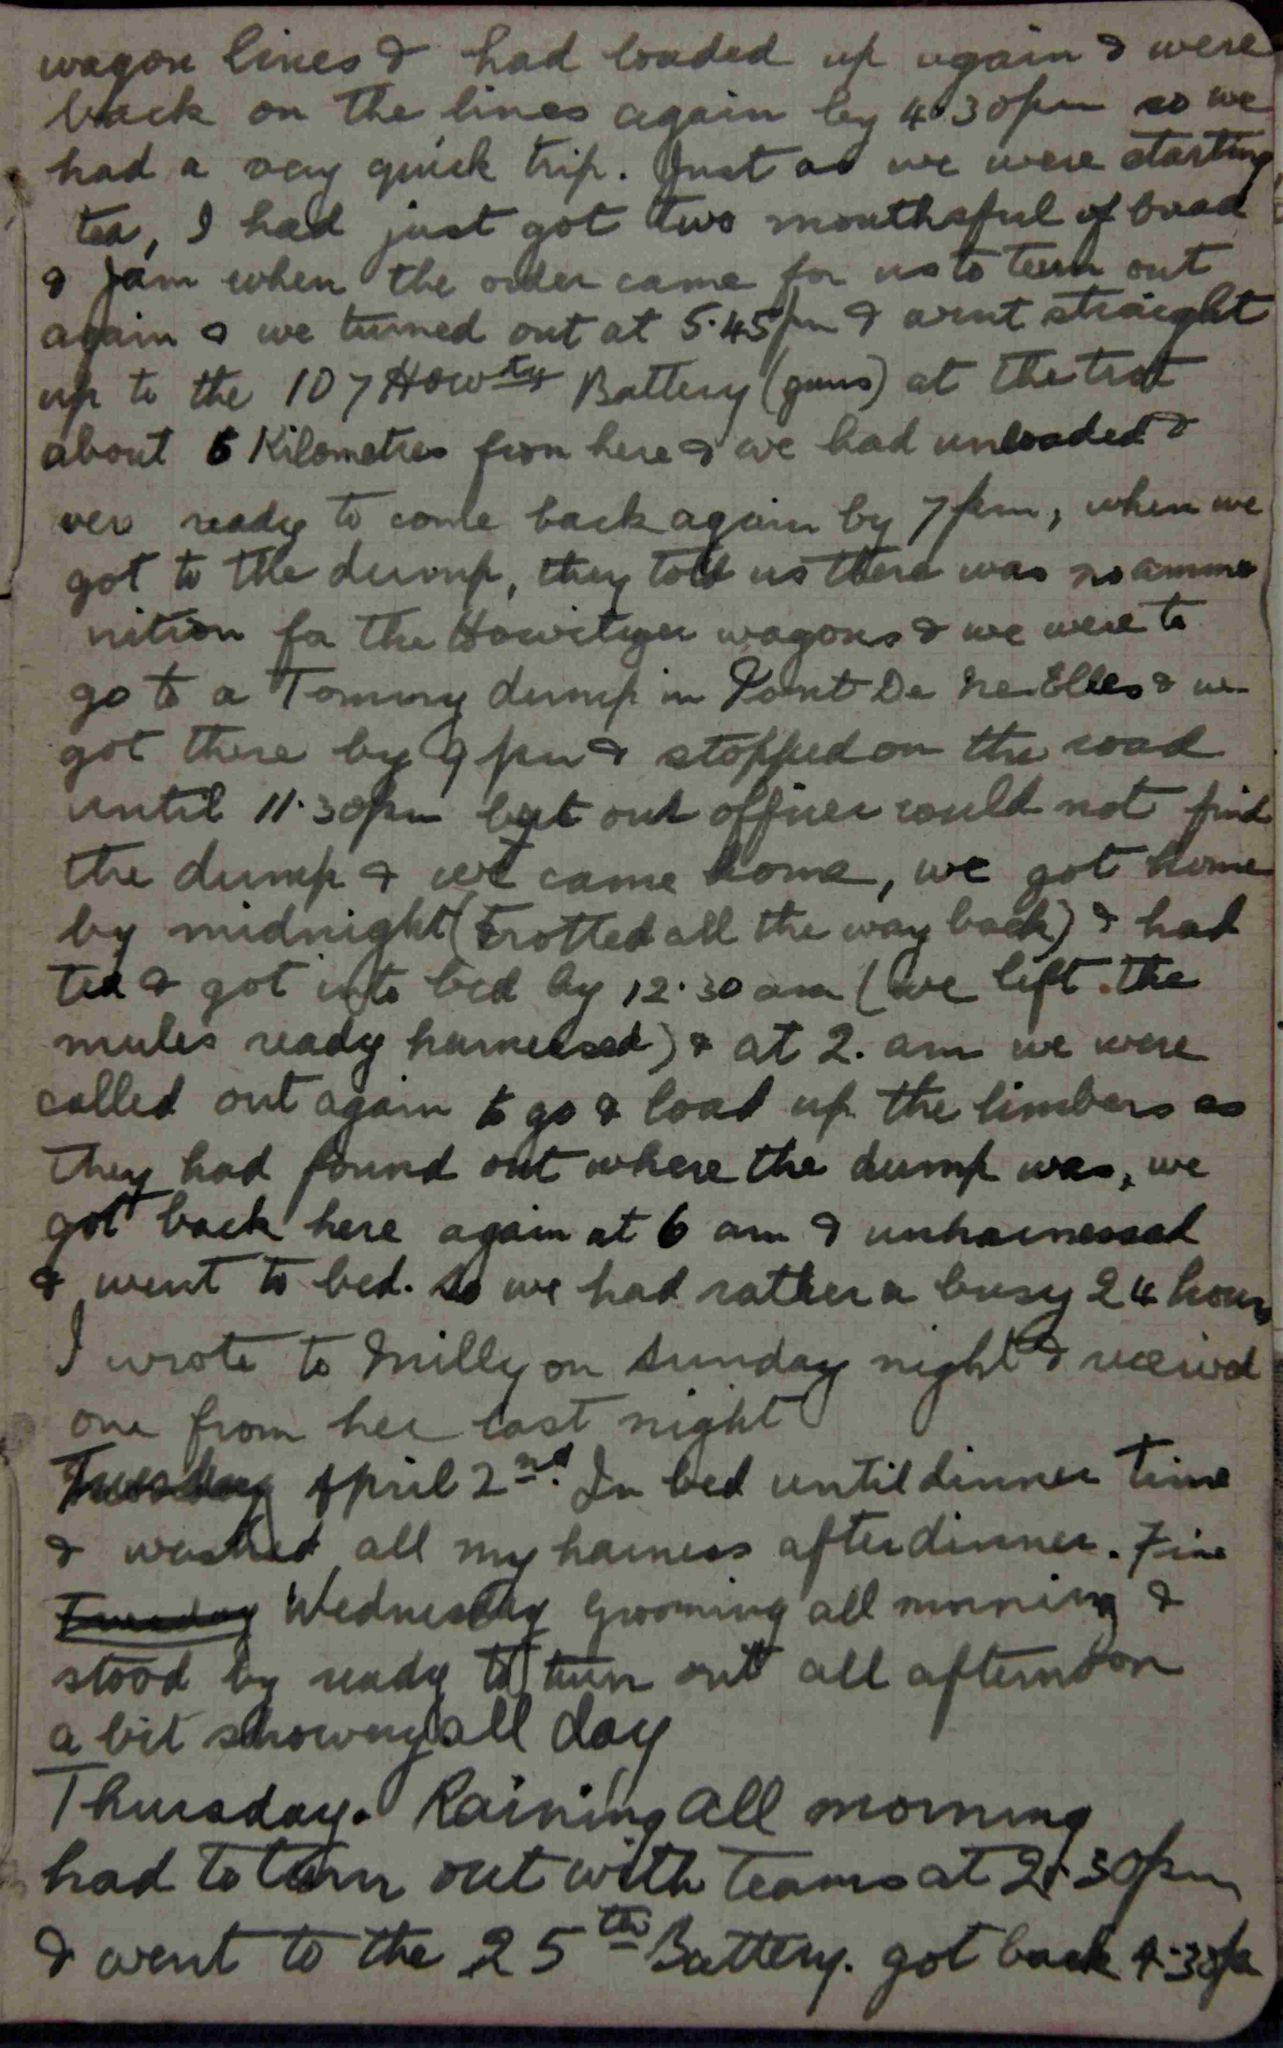 wagon lines & had loaded up again & were
back on the lines again by 4.30pm so we
had a very quick trip. Just as we were starting
tea, I had just got two mouthsful of bread
& jam when the order came for us to turn out
again & we turned out at 5.45pm & went straight
up to the 107 Howty Battery (guns) at the trot
about 6 Kilometres from here & we had unloaded &
were ready to come back again by 7pm, when we
got to the dump, they told us there was no ammu
nition for the Howitzer wagons & we were to
go to a Tommy dump in Pont De & we
got there by 9 pm & stopped on the road
until 11.30pm but our officer could not find
the dump & we came home, we got home
by midnight (trotted all the way back) & had
tea & got into bed by 12.30 am (we left the
mules ready harnessed) & at 2. am we were
called out again to go & load up the limbers as
they had found out where the dump was, we
got back here again at 6 am & unharnessed
& went to bed. So we had rather a busy 24 hours
I wrote to Milly on Sunday night & received
one from her last night
Tuesday April 2nd. In bed until dinner time
& washed all my harness after dinner. Fine
Tuesday Wednesday Grooming all morning &
stood by ready to turn out all afternoon
a bit showery all day
Thursday. Raining all morning
had to turn out with teams at 2.30pm
& went to the 25th Battery. got back 4.30pm